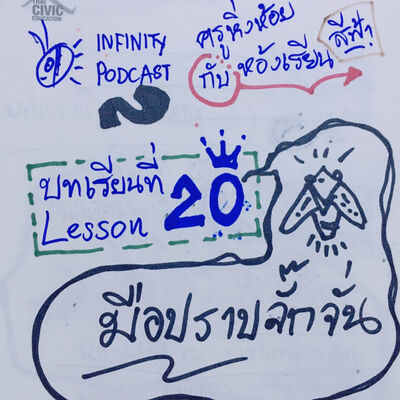 THAI
CIVIC
EDUCATION
INFINITY
PODCAST
ครูหิ่งห้อย
กับ ห้องเรียน สีฟ้า
บทเรียนที่
Lesson 20
มือปราบจั๊กจั่น